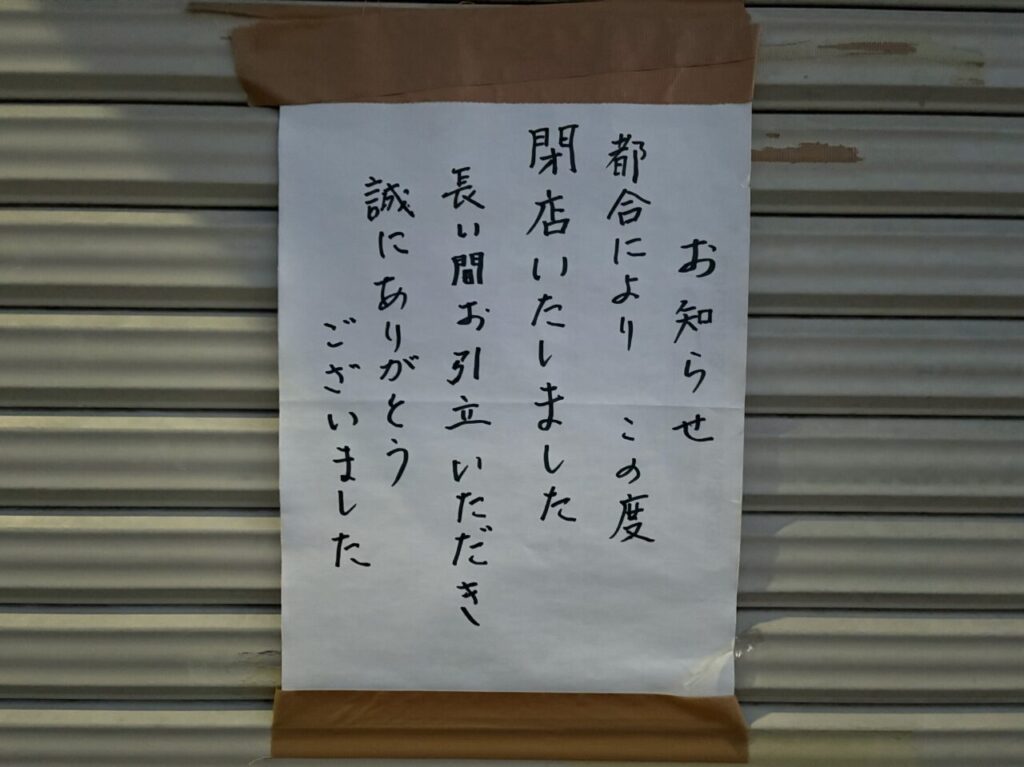 お知らせ
都合により この度
閉店いたしました
長い間お引立いただき
誠にありがとう
ございました